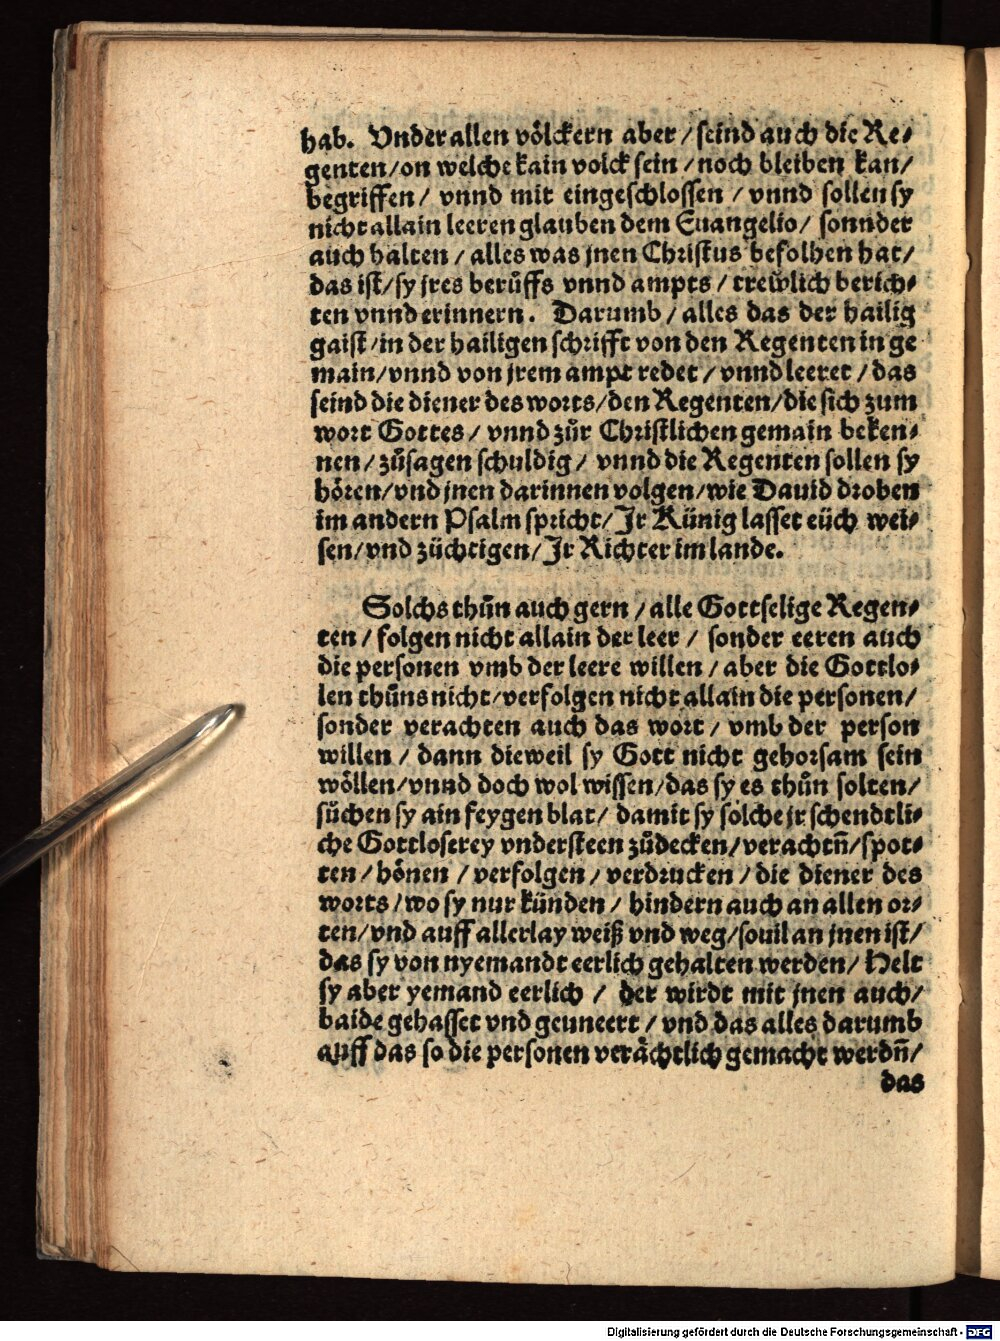 hab. Vnder allen völckern aber / seind auch die Re⸗
genten / on welche kain volck sein / noch bleiben kan /
begriffen / vnnd mit eingeschlossen / vnnd sollen sy
nicht allain leeren glauben dem Euangelio / sonnder
auch halten / alles was jnen Christus befolhen hat /
das ist / sy jres berůffs vnnd ampts / trewlich berich⸗
ten vnnd erinnern. Darumb / alles das der hailig
gaist / in der hailigen schrifft von den Regenten in ge
main / vnnd von jrem ampt redet / vnnd leeret / das
seind die diener des worts / den Regenten / die sich zum
wort Gottes / vnnd zůr Christlichen gemain beken⸗
nen / zůsagen schuldig / vnnd die Regenten sollen sy
hören / vnd jnen darinnen volgen / wie Dauid droben
im andern Psalm spricht / Jr Künig lasset eüch wei⸗
sen / vnd züchtigen / Jr Richter im lande.
Solchs thůn auch gern / alle Gottselige Regen⸗
ten / folgen nicht allain der leer / sonder eeren auch
die personen vmb der leere willen / aber die Gottlo⸗
sen thůns nicht / verfolgen nicht allain die personen /
sonder verachten auch das wort / vmb der person
willen / dann dieweil sy Gott nicht gehorsam sein
wöllen / vnnd doch wol wissen / das sy es thůn solten /
sůchen sy ain feygen blat / damit sy solche jr schendtli⸗
che Gottloserey vndersteen zůdecken / verachtn̄ / spot⸗
ten / hönen / verfolgen / verdrucken / die diener des
worts / wo sy nur künden / hindern auch an allen or⸗
ten / vnd auff allerlay weiß vnd weg / souil an jnen ist /
das sy von nyemandt eerlich gehalten werden / Helt
sy aber yemand eerlich / der wirdt mit jnen auch /
baide gehasset vnd geuneert / vnd das alles darumb
auff das so die personen verächtlich gemacht werdn̄ /
das
Digitalisierung gefördert durch die Deutsche Forschungsgemeinschaft - DFG